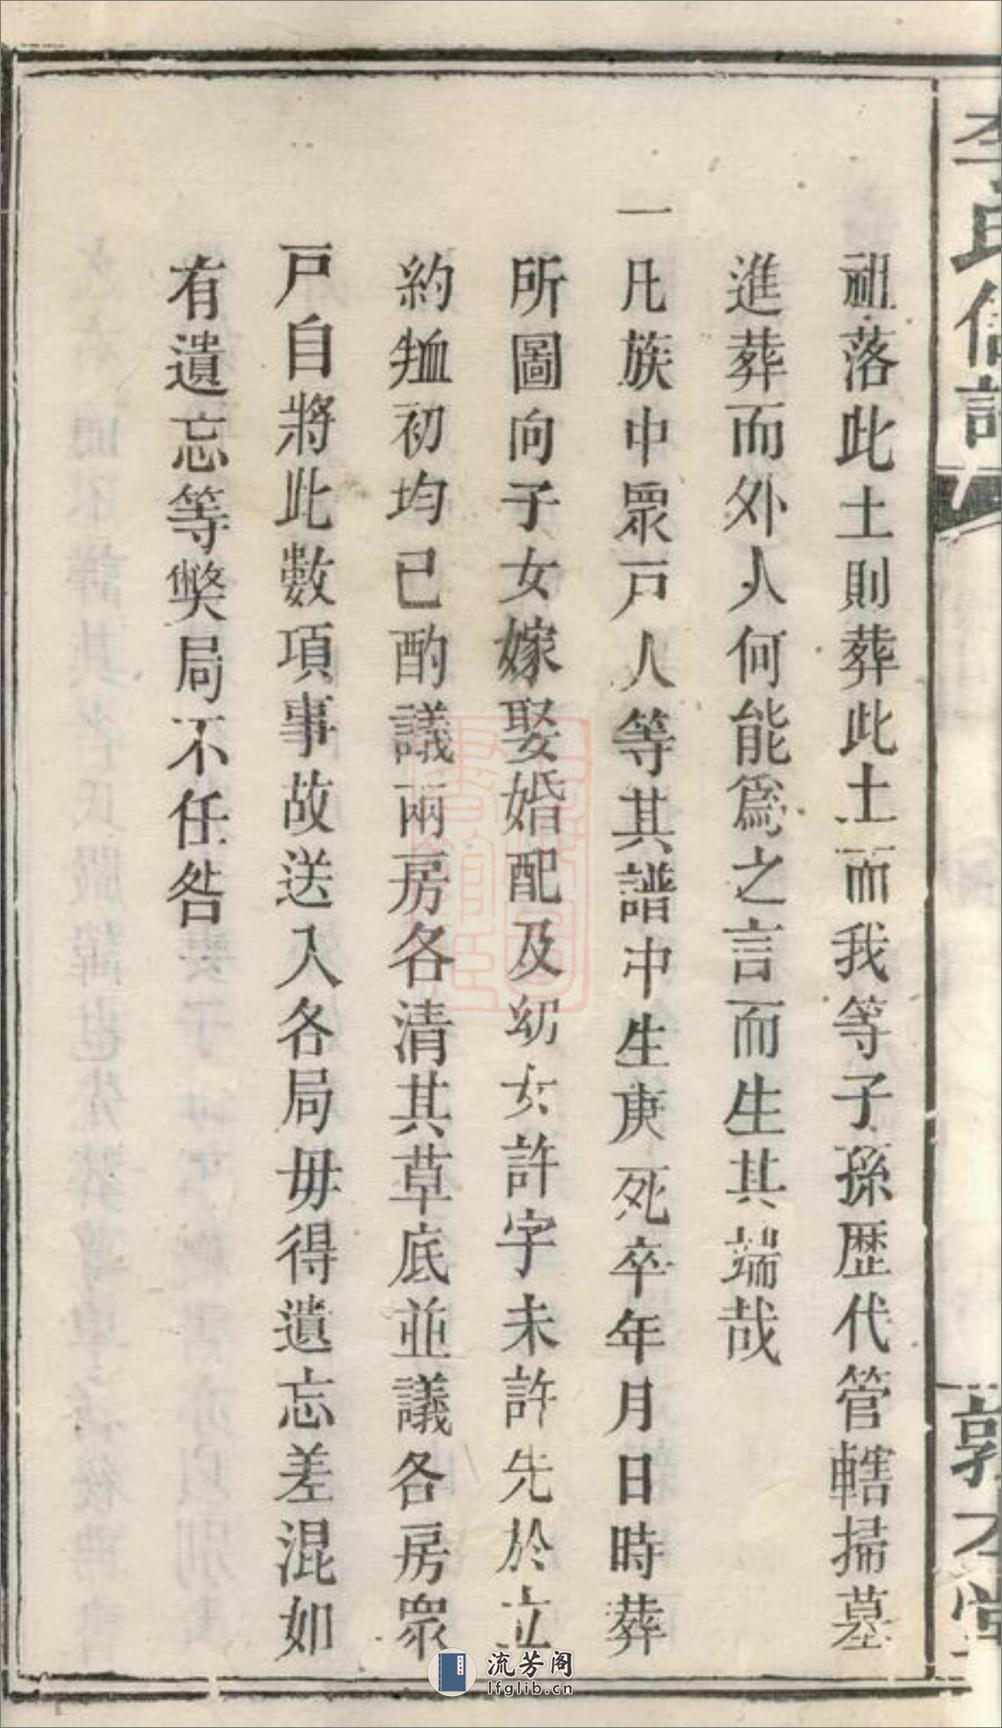 李氏信譜
敦本堂
祖落此土則葬此土而我等子孫歷代管轄掃墓
進葬而外人何能爲之言而生其端哉
一凡族中眾戸人等其譜中生庚死卒年月日時葬
所圖向子女嫁娶婚配及幼女許字未許先於立
約䘏初均已酌議兩房各清其草底並議各房眾
戸自將此數項事故送入各局毋得遺忘差混如
有遺忘等獘局不任咎
流芳阁
lfglib.cn